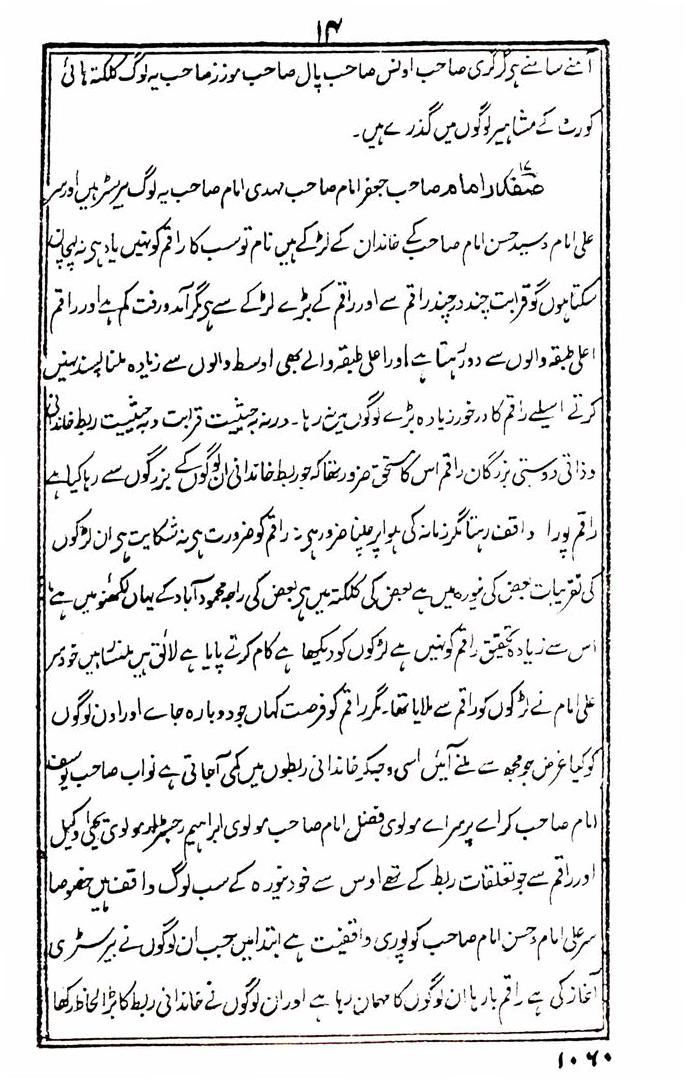 ۱۴
آمنے سامنے ہی گرگری صاحب اونس صاحب پال صاحب موزز صاحب یہ لوگ کلکتہ ہائی
کورٹ کے مشاہیر لوگوں میں گذرے ہیں۔
امام صاحب جعفر امام صاحب مہدی امام صاحب یہ لوگ بیرسٹر ہیں اور سر
علی امام و سید حسن امام صاحب کے خاندان کے لڑکے ہیں نام تو سب کا راقم کو نہیں یاد ہی نہ پہچان
سکتا ہوں گو قرابت چند در چند راقم سے اور راقم کے بڑے لڑکے سے ہی مگر آمد و رفت کم ہے اور راقم
اعلی طبقہ والوں سے دور رہتا ہے اور اعلی طبقہ والے بھی اوسط والوں سے زیادہ ملنا پسند نہیں
کرتے اسلیے راقم کا درخور زیادہ بڑے لوگوں میں نہ رہا۔ ورنہ بہ حیثیت قرابت و بہ حیثیت ربط خاندانی
و ذاتی دوستی بزرگان راقم اس کا مستحق ضرور تھا کہ جو ربط خاندانی ان لوگوں کے بزرگوں سے رہا کیا ہے
راقم پورا واقف رہتا مگر زمانہ کی ہوا پر چلنا ضرور ہی نہ راقم کو ضرورت ہی نہ شکایت ہی ان لڑکوں
کی تقریبات بعض کی نیورہ میں ہے بعض کی کلکتہ میں ہی بعض کی راجہ محمود آباد کے یہاں لکھنؤ میں ہے
اس سے زیادہ تحقیق راقم کو نہیں ہے لڑکوں کو دیکھا ہے کام کرتے پایا ہے لائق ہیں ملنسار ہیں خود سر
علی امام نے لڑکوں کو راقم سے ملایا تھا۔ مگر راقم کو فرصت کہاں جو دوبارہ جاے اور اون لوگوں
کو کیا غرض جو مجھ سے ملنے آئیں اسی وجہ کر خاندانی ربطوں میں کمی آجاتی ہے نواب صاحب یوسف
امام صاحب کراے پرسراے مولوی فضل امام صاحب مولوی ابراہیم رجسٹرار مولوی یحیی وکیل
اور راقم سے جو تعلقات ربط کے تھے اوس سے خود نیورہ کے سب لوگ واقف ہیں خصوصا
سر علی امام و حسن امام صاحب کو پوری واقفیت ہے ابتدا میں جب ان لوگوں نے بیرسٹری
آغاز کی ہے راقم بارہا ان لوگوں کا مہمان رہا ہے اور ان لوگوں نے خاندانی ربط کا بڑا لحاظ رکھا
۱۰۶۰